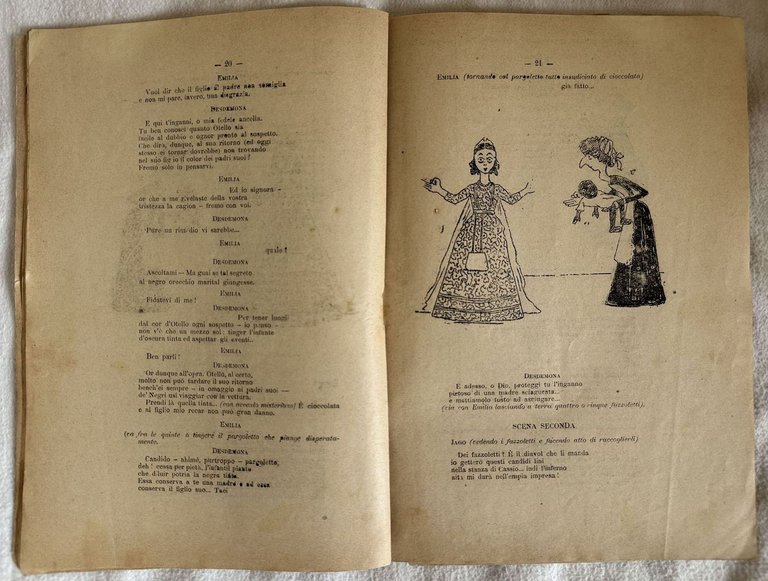 — 20 —
EMILIA
Vuol dir che il figlio il padre non somiglia
e non mi pare, invero, una disgrazia.
DESDEMONA
E qui t'inganni, o mia fedele ancella.
Tu ben conosci quanto Otello sia
incle al dubbio e ognor pronto al sospetto.
Che dirà, dunque, al suo ritorno (ed oggi
stesso ei tornar dovrebbe) non trovando
nel suo figlio il color dei padri suoi?
Fremo solo in pensarvi.
EMILIA
Ed io signora —
or che a me rivelaste della vostra
tristezza la cagion — fremo con voi.
DESDEMONA
Pure un rimedio vi sarebbe...
EMILIA
quale?
DESDEMONA
Ascoltami — Ma guai se tal segreto
al negro orecchio marital giungesse.
EMILIA
Fidatevi di me!
DESDEMONA
Per tener lungi
dal cor d'Otello ogni sospetto — io penso —
non v'è che un mezzo sol: tinger l'infante
d'oscura tinta ed aspettar gli eventi..
EMILIA
Ben parli!
DESDEMONA
Or dunque all'opra. Otello, al certo,
molto non può tardare il suo ritorno
bench'ei sempre — in omaggio ai padri suoi —
de' Negri usi viaggiar con la vettura.
Prendi là quella tinta... (con accento misterioso) È cioccolata
e al figlio mio recar non può gran danno.
EMILIA
(va fra le quinte a tingere il pargoletto che piange disperata-
mente.
DESDEMONA
Candido — ahimè, purtroppo — pargoletto,
deh! cessa per pietà, l'infantil pianto
che diluir potria la negra tinta.
Essa conserva a te una madre e ad essa
conserva il figlio suo... Taci
— 21 —
EMILIA (tornando col pargoletto tutto insudiciato di cioccolata)
già fatto...
DESDEMONA
E adesso, o Dio, proteggi tu l'inganno
pietoso di una madre sciagurata...
e mettiamolo tosto ad asciugare...
(via con Emilia lasciando a terra quattro o cinque fazzoletti).
SCENA SECONDA.
IAGO (vedendo i fazzoletti e facendo atto di raccoglierli)
Dei fazzoletti! È il diavol che li manda
io getterò questi candidi lini
nella stanza di Cassio... indi l'inferno
aita mi darà nell'empia impresa!